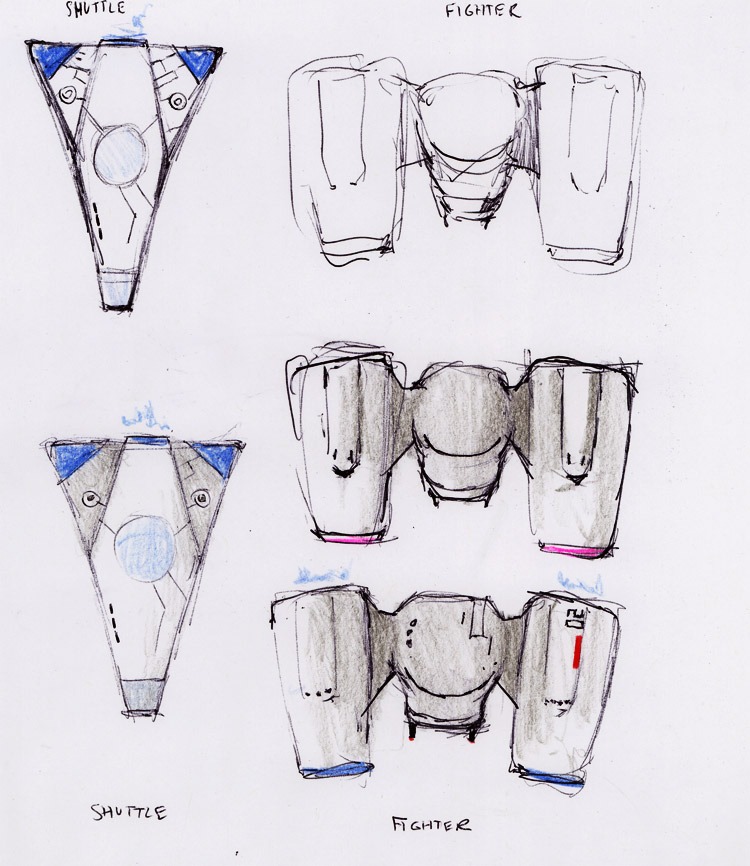 SHUTTLE
FIGHTER
SHUTTLE
FIGHTER